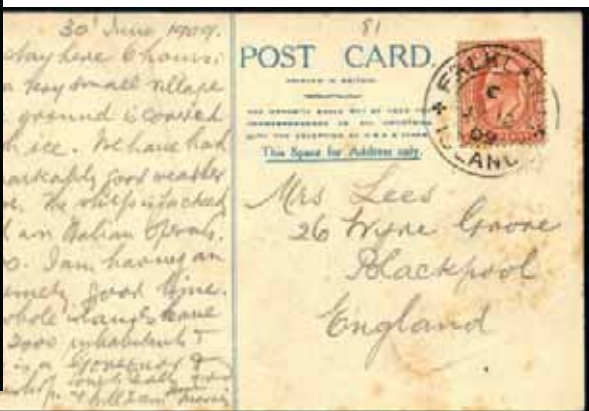 30 June 1909.
stay here 6 hours.
a very small village
ground is covered
h ice. We have had
arkably good weather
The ship is packed
an Italian Opera
I am having an
emely good time.
whole islands have
2000 inhabitants &
is a Governor &
William Morris
81
POST CARD.
PRINTED IN BRITAIN
This Space for Address only.
FALKLAND
C
09
ISLANDS
Mrs Lees
26 Grove
Blackpool
England